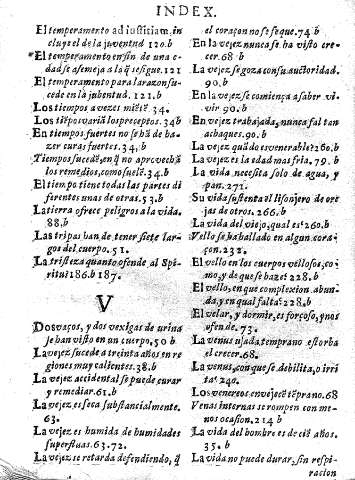 INDEX.
El temperamento ad iustitiam, in
cluye el de la juventud 120.b
El temperamento ensin de una e-
dad se asemeja a la q̃ se sigue. 121
El temperamento para la razon su-
cede en la juventud. 121.b
Los tiempos a vezes 34.
Los varia los preceptos 34.b
En tiempos fuertes no se hã de ha-
zer curas fuertes. 34.b
Tiempos succedẽ, en q̃ no aprovechã
los remedios, como suelẽ. 34.b
El tiempo tiene todas las partes di
ferentes unas de otras. 53.b
La tierra ofrece peligros a la vida.
88.b
Las tripas han de tener siete lar-
gos del cuerpo. 51.
La tristeza quanto ofende al Spi-
ritu 186.b 187.
V
Dos vasos, y dos vexigas de urina
se han visto en un cuerpo. 50 b
La vejez sucede a treinta años en re
giones muy calientes. 38.b
La vejez accidental se puede curar
y remediar. 61.b
La vejez es seca substancialmente.
63.
La vejez es humeda de humedades
superfluas. 63.72.
La vejez se retarda defendiendo, q̃
el coraçon no se seque. 74 b
En la vejez nunca se ha visto cre-
cer. 68 b
La vejez se goza con su auctoridad.
90.b
En la vejez se comiença a saber vi-
vir 90.b
En vejez trabajada, nunca fal tan
achaques. 90.b
La vejez quãdo es venerable? 260.b
La vejez es la edad mas fria. 79. b
La vida necesita solo de agua, y
pan. 271.
Su vida sustenta el lisonjero de ore
jas de otros. 266.
La vida del viejo, qual es? 260.b
Vello se ha ballado en algun cora-
çon. 232.
El vello en los cuerpos vellosos, co-
mo, y de que se haze? 228.b
El vello, en que complexion abun-
da, y en qual falta? 228.b
El velar, y dormir, es forçoso, y nos
ofen de. 73.
La venus usada temprano estorba
el crecer. 68.
La venus, con que se debilita, o irri
ta? 240.
Los venereos envejecẽ tẽprano. 68
Venas internas se rompen con me-
nos ocasion. 214 b
La vida del hombre es de ciẽ años.
35. b
La vida no puede durar, sin respi-
racion